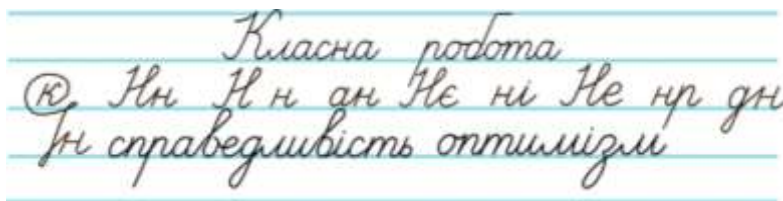 Класна робота
к Нн Н н ан Нє ні Не нр дн
Ін справедливість оптимізм